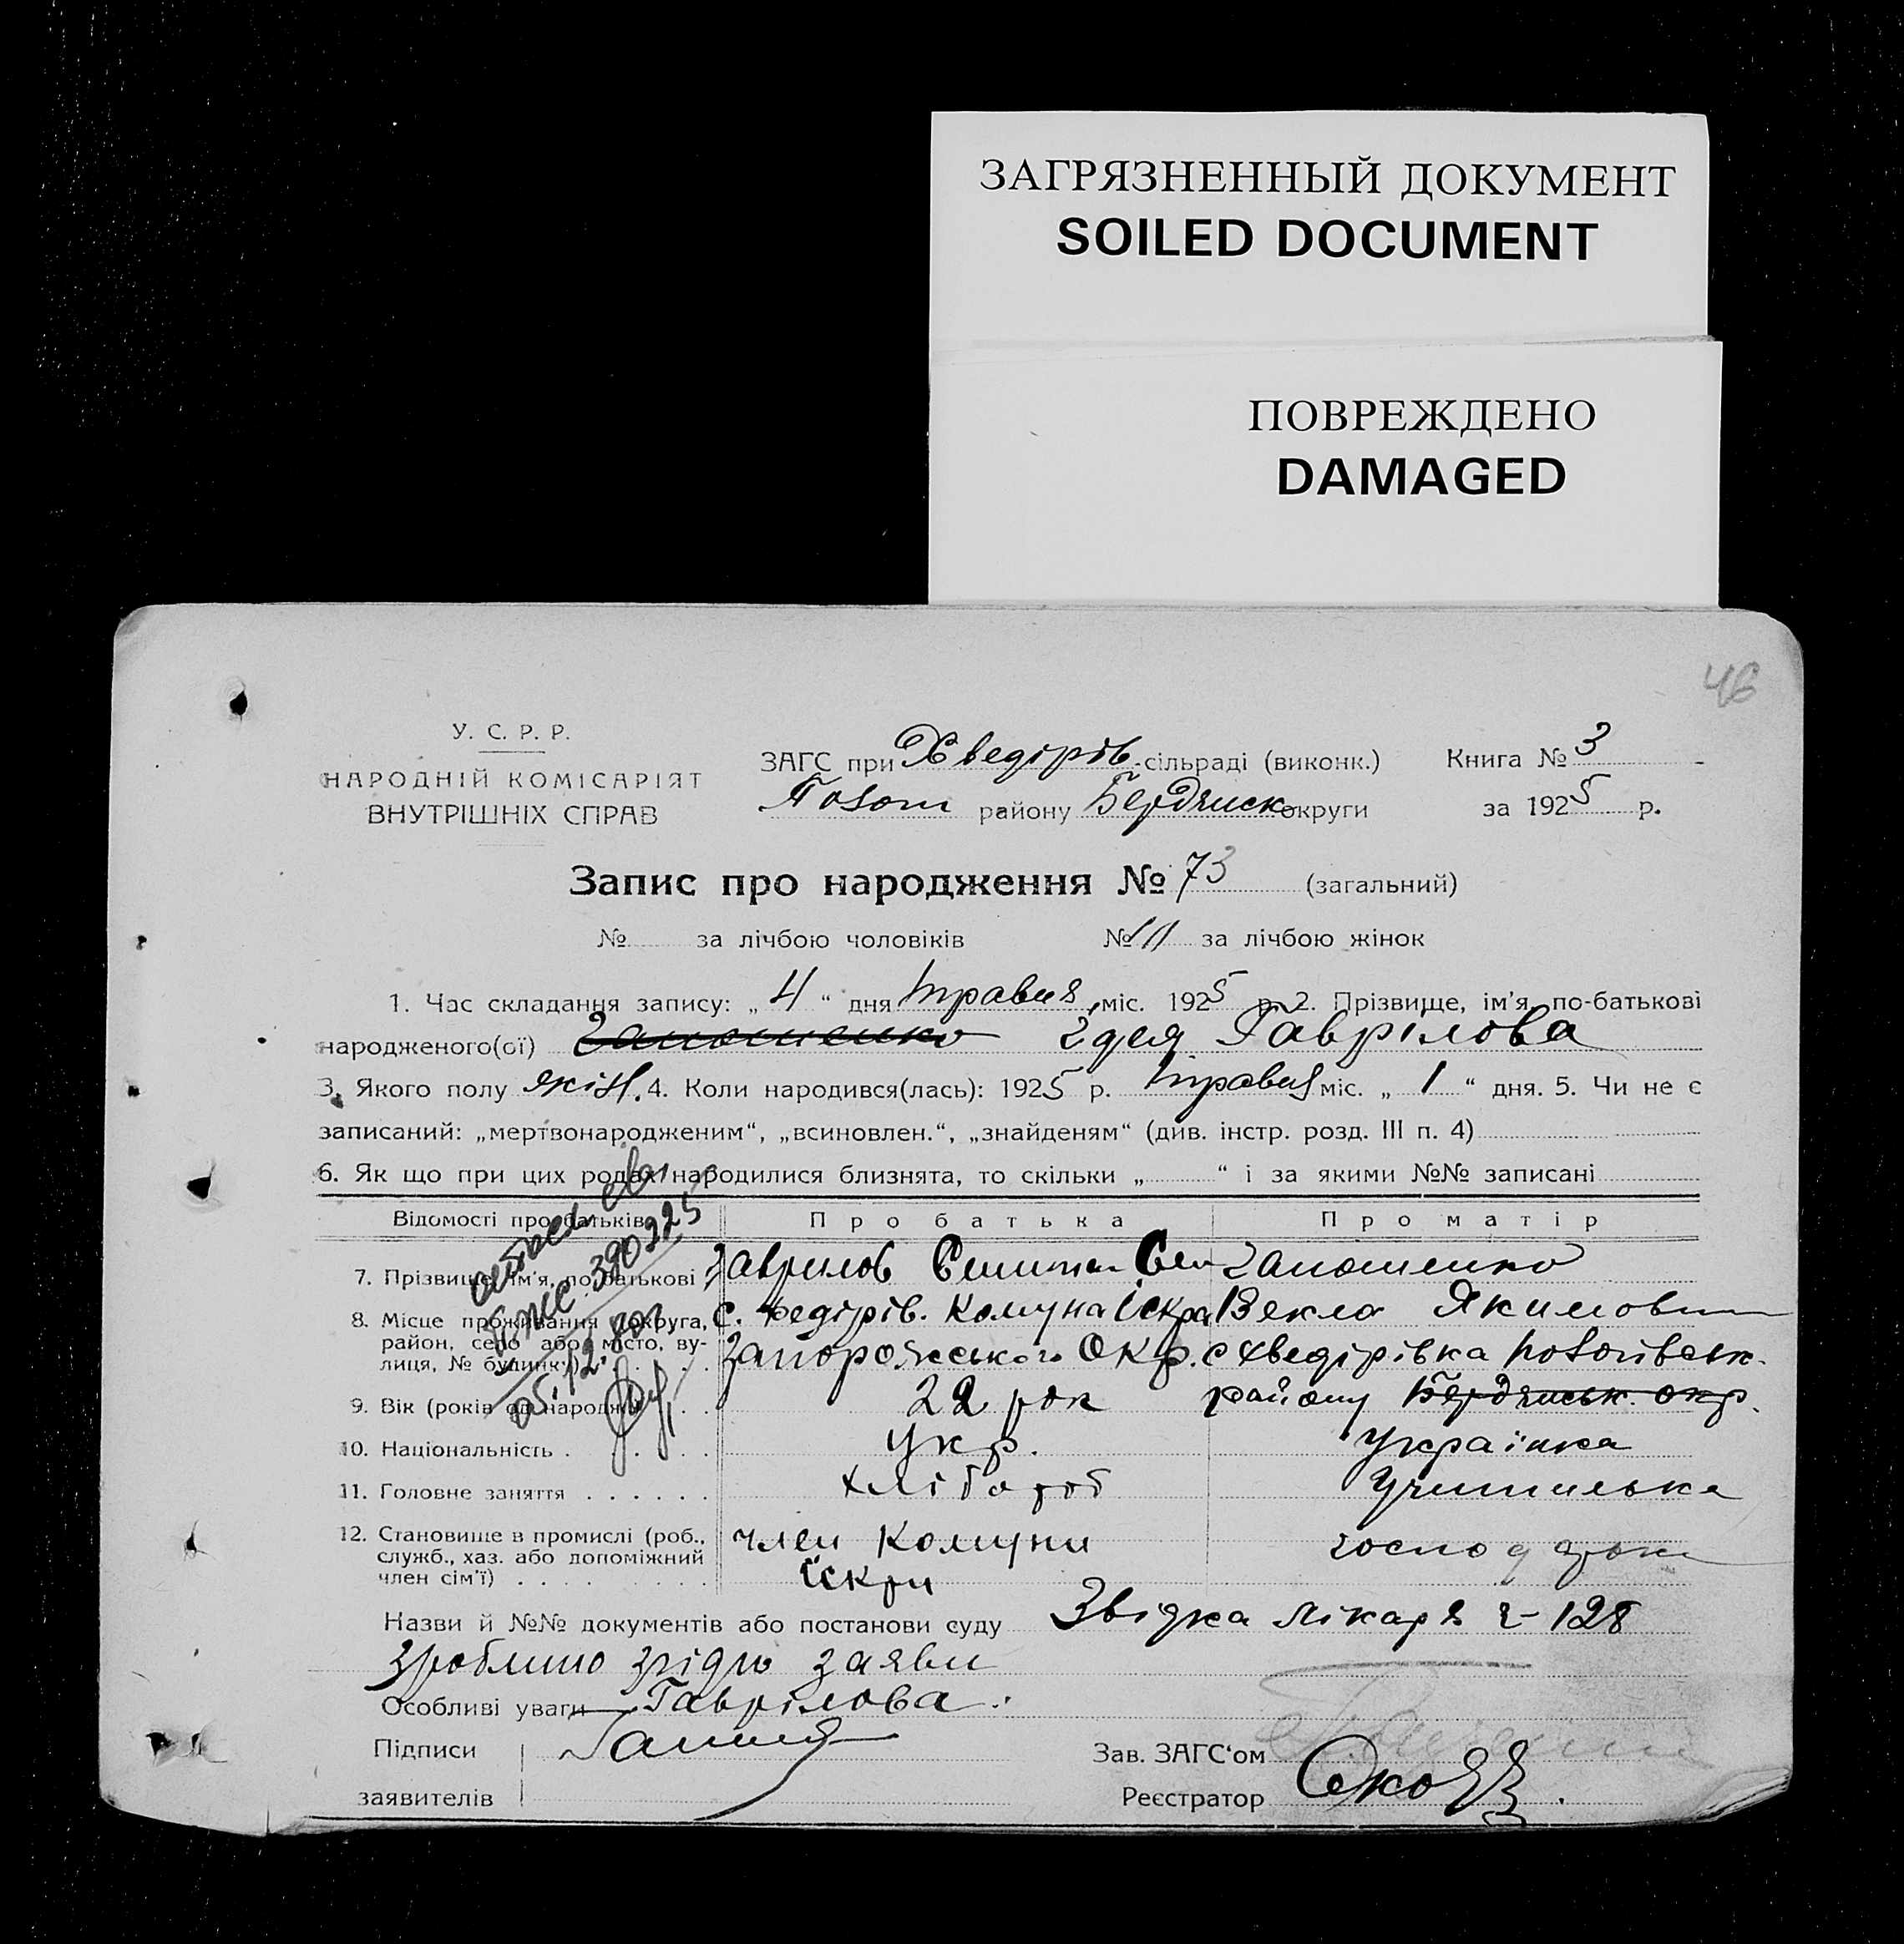 ЗАГРЯЗНЕННЫЙ ДОКУМЕНТ
SOILED DOCUMENT
ПОВРЕЖДЕНО
DAMAGED
46
У. С. Р. Р.
НАРОДНІЙ КОМІСАРІЯТ
ВНУТРІШНІХ СПРАВ
ЗАГС при Хведірів. сільраді (виконк.)
району Бердянск округи
Книга № 3
за 1925 р.
Запис про народження № 73 (загальний)
№ за лічбою чоловіків № 11 за лічбою жінок
1. Час складання запису: „ 4 “ дня травня міс. 1925 р. 2. Прізвище, ім'я, по-батькові
народженого(ої) Гапоненко Ідея Гаврілова
3. Якого полу жін. 4. Коли народився(лась): 1925 р. травня міс. „ 1 “ дня. 5. Чи не є
записаний: „мертвонародженим“, „всиновлен.“, „знайденям“ (див. інстр. розд. III п. 4)
6. Як що при цих родах народилися близнята, то скільки „ “ і за якими №№ записані
Відомості про батьків Про батька Про матір
7. Прізвище, ім'я, по-батькові Гаврилов Гапоненко
8. Місце проживання (округа, район, село або місто, вулиця, № будинк.) с. Федірів. Комуна Іскра Векла Якимовн
Запорожського Окр. с Хведірівка
9. Вік (років од народж.) 22 рок району Бердянськ. окр.
10. Національність укр. Українка
11. Головне заняття хлібороб Учителька
12. Становище в промислі (роб., служб., хаз. або допоміжний член сім'ї) член Комуни
Іскри
Назви й №№ документів або постанови суду Звідка лікаря 128
зроблино згідно заяви
Особливі уваги Гаврілова
Підписи
заявителів
Зав. ЗАГС‘ом
Реєстратор